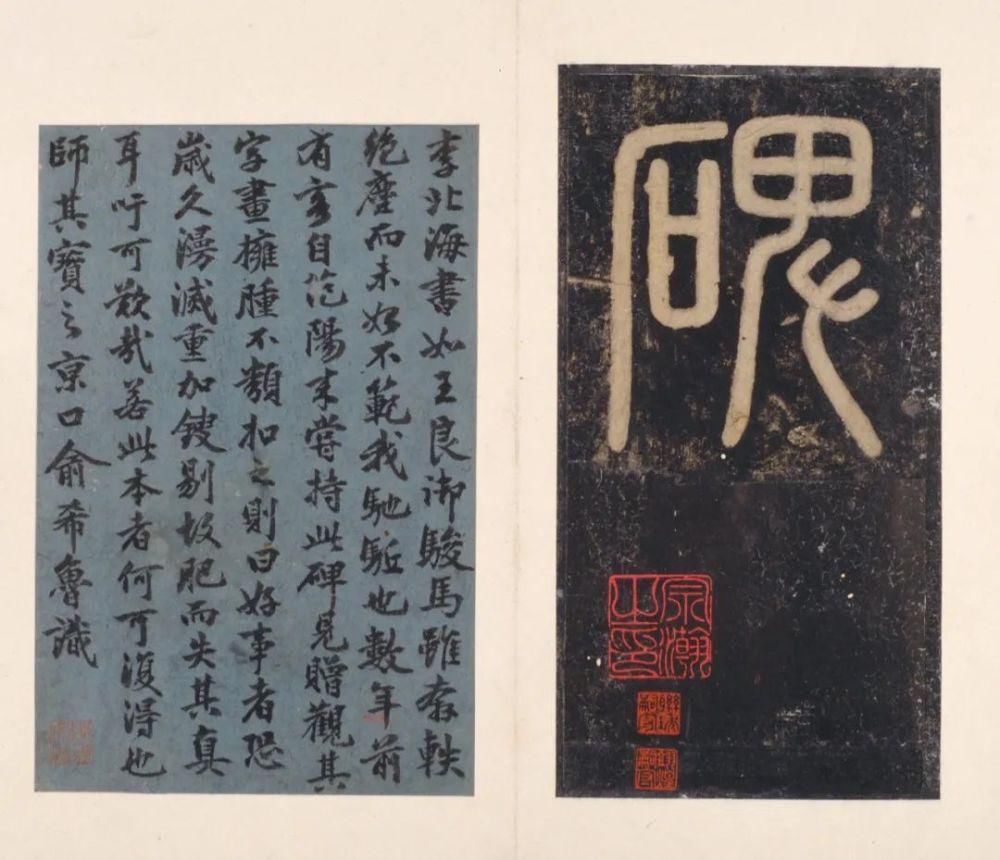 碑
宗瀚之印
李北海書如王良御駿馬雖奔軼
絶塵而未始不範我馳駈也數年前
有客自范陽来嘗持此碑見贈觀其
字畫擁腫不類扣之則曰好事者恐
歲久漫滅重加鋟剔故肥而失其真
耳吁可歎哉若此本者何可復得也
師其寶之京口俞希魯識